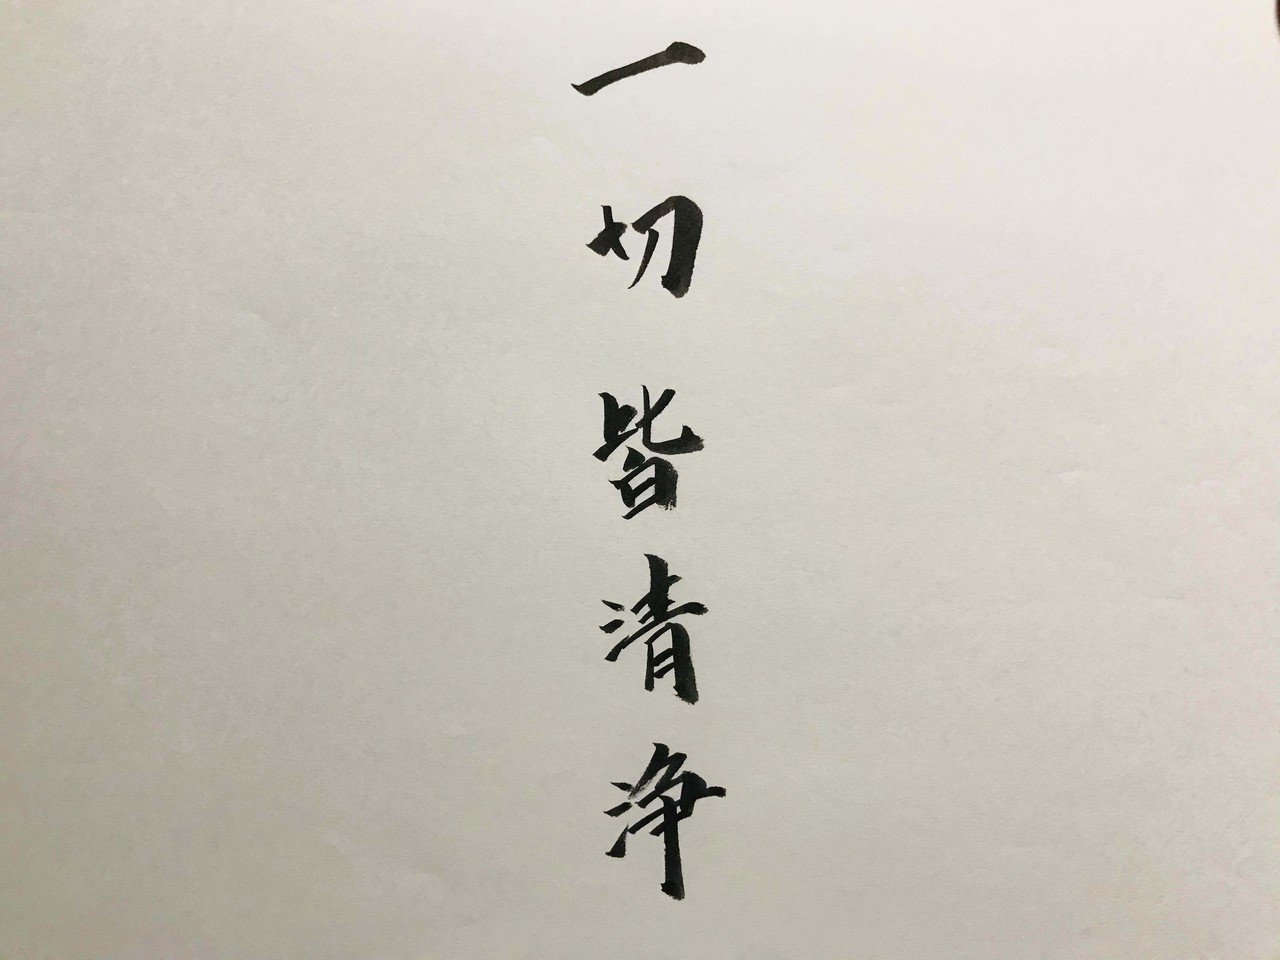 一切皆清浄